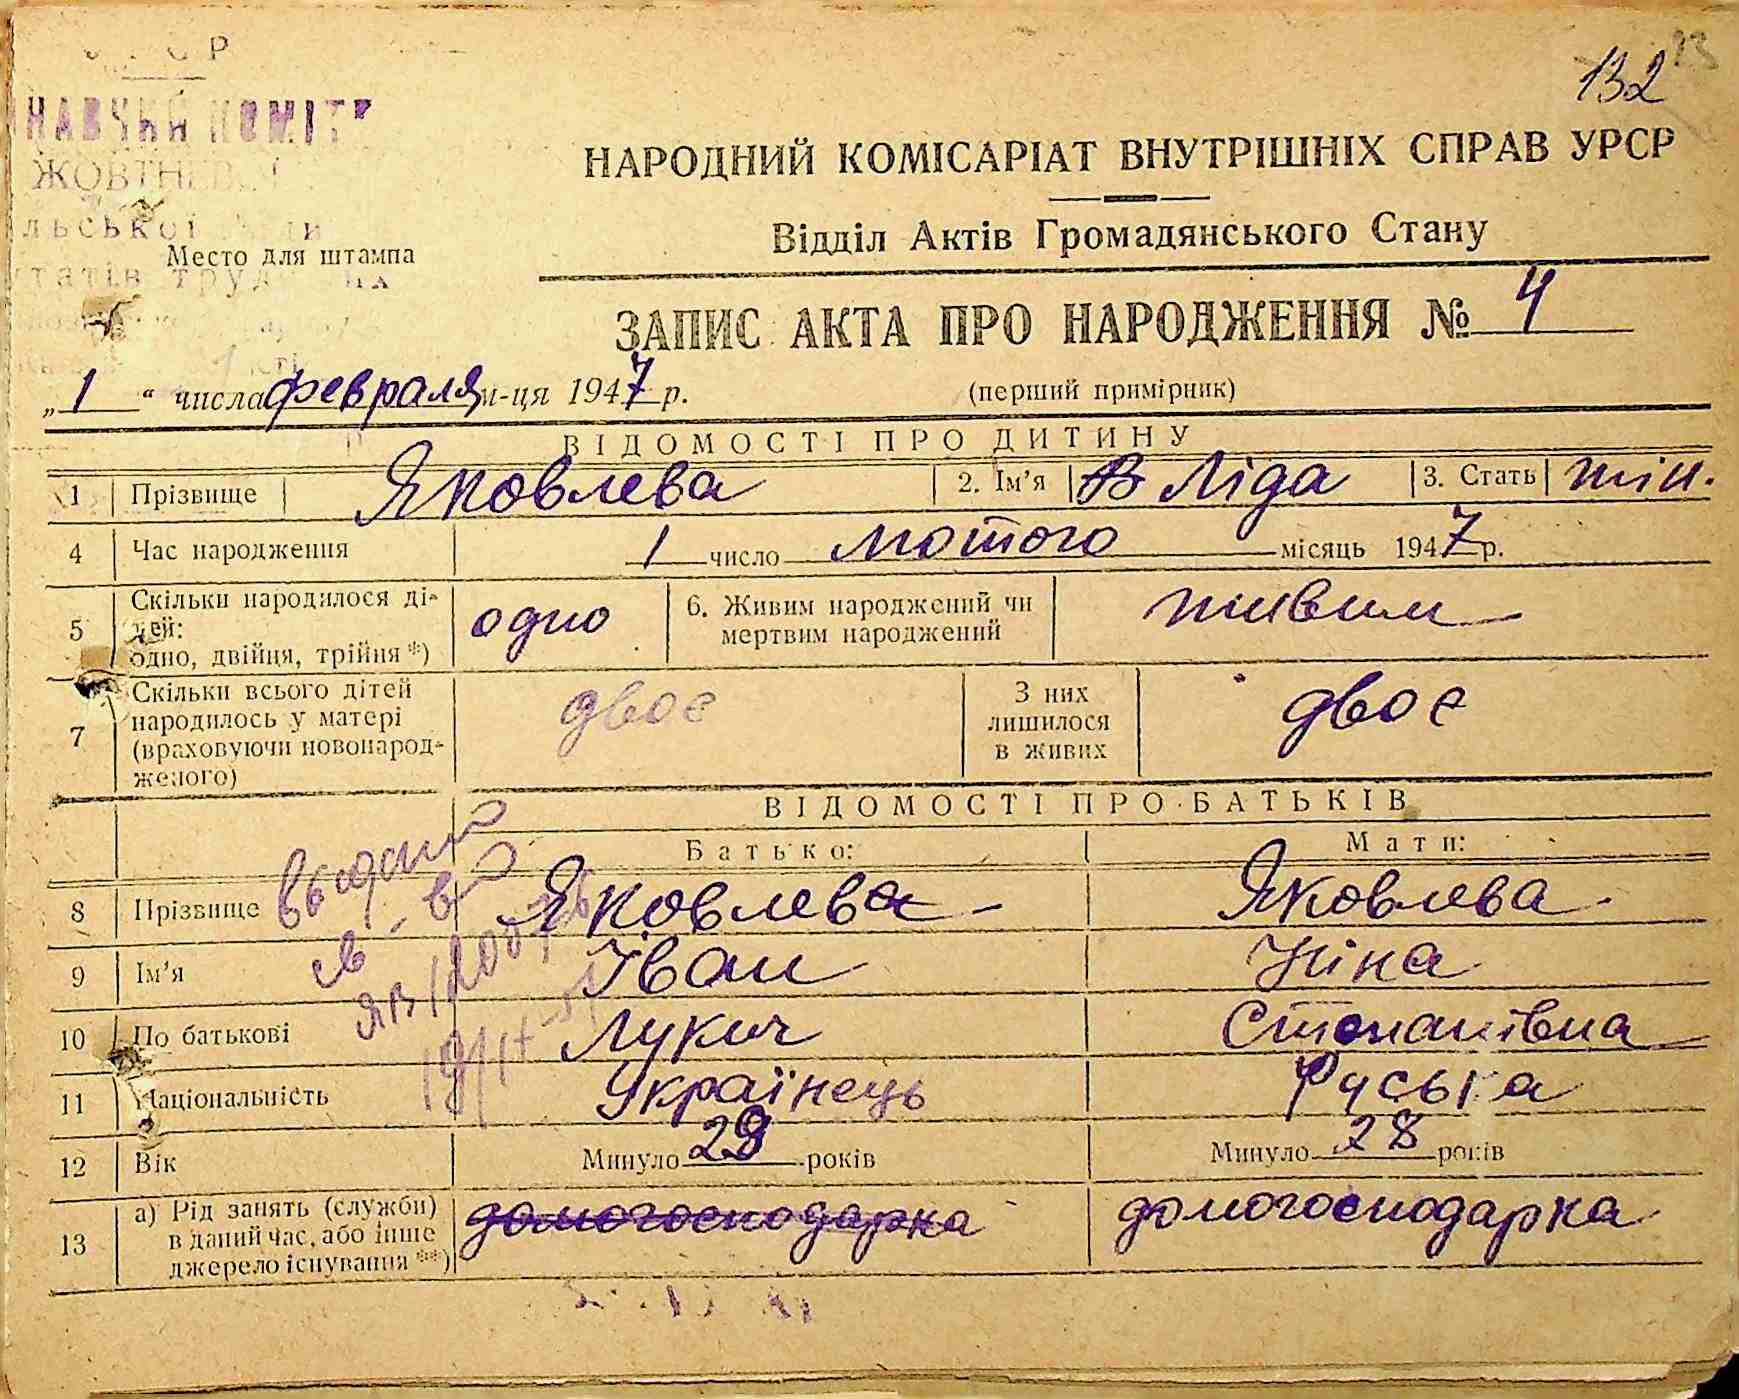 132
НАРОДНИЙ КОМІСАРІАТ ВНУТРІШНІХ СПРАВ УРСР
Відділ Актів Громадянського Стану
Место для штампа
ЗАПИС АКТА ПРО НАРОДЖЕННЯ № 4
„1“ числа февраля м-ця 1947 р. (перший примірник)
ВІДОМОСТІ ПРО ДИТИНУ
1 Прізвище Яковлева 2. Ім'я Ліда 3. Стать жін.
4 Час народження 1 число лютого місяць 1947 р.
5 Скільки народилося ді-
тей:
одно, двійня, трійня *) одно 6. Живим народжений чи
мертвим народжений живим
7 Скільки всього дітей
народилось у матері
(враховуючи новонарод-
женого) двоє З них
лишилося
в живих двоє
ВІДОМОСТІ ПРО БАТЬКІВ
Батько: Мати:
8 Прізвище Яковлева Яковлева
9 Ім'я Іван Ніна
10 По батькові Лукич Степанівна
11 Національність Українець Руська
12 Вік Минуло 29 років Минуло 28 років
13 а) Рід занять (служби)
в даний час, або інше
джерело існування **) домогосподарка домогосподарка